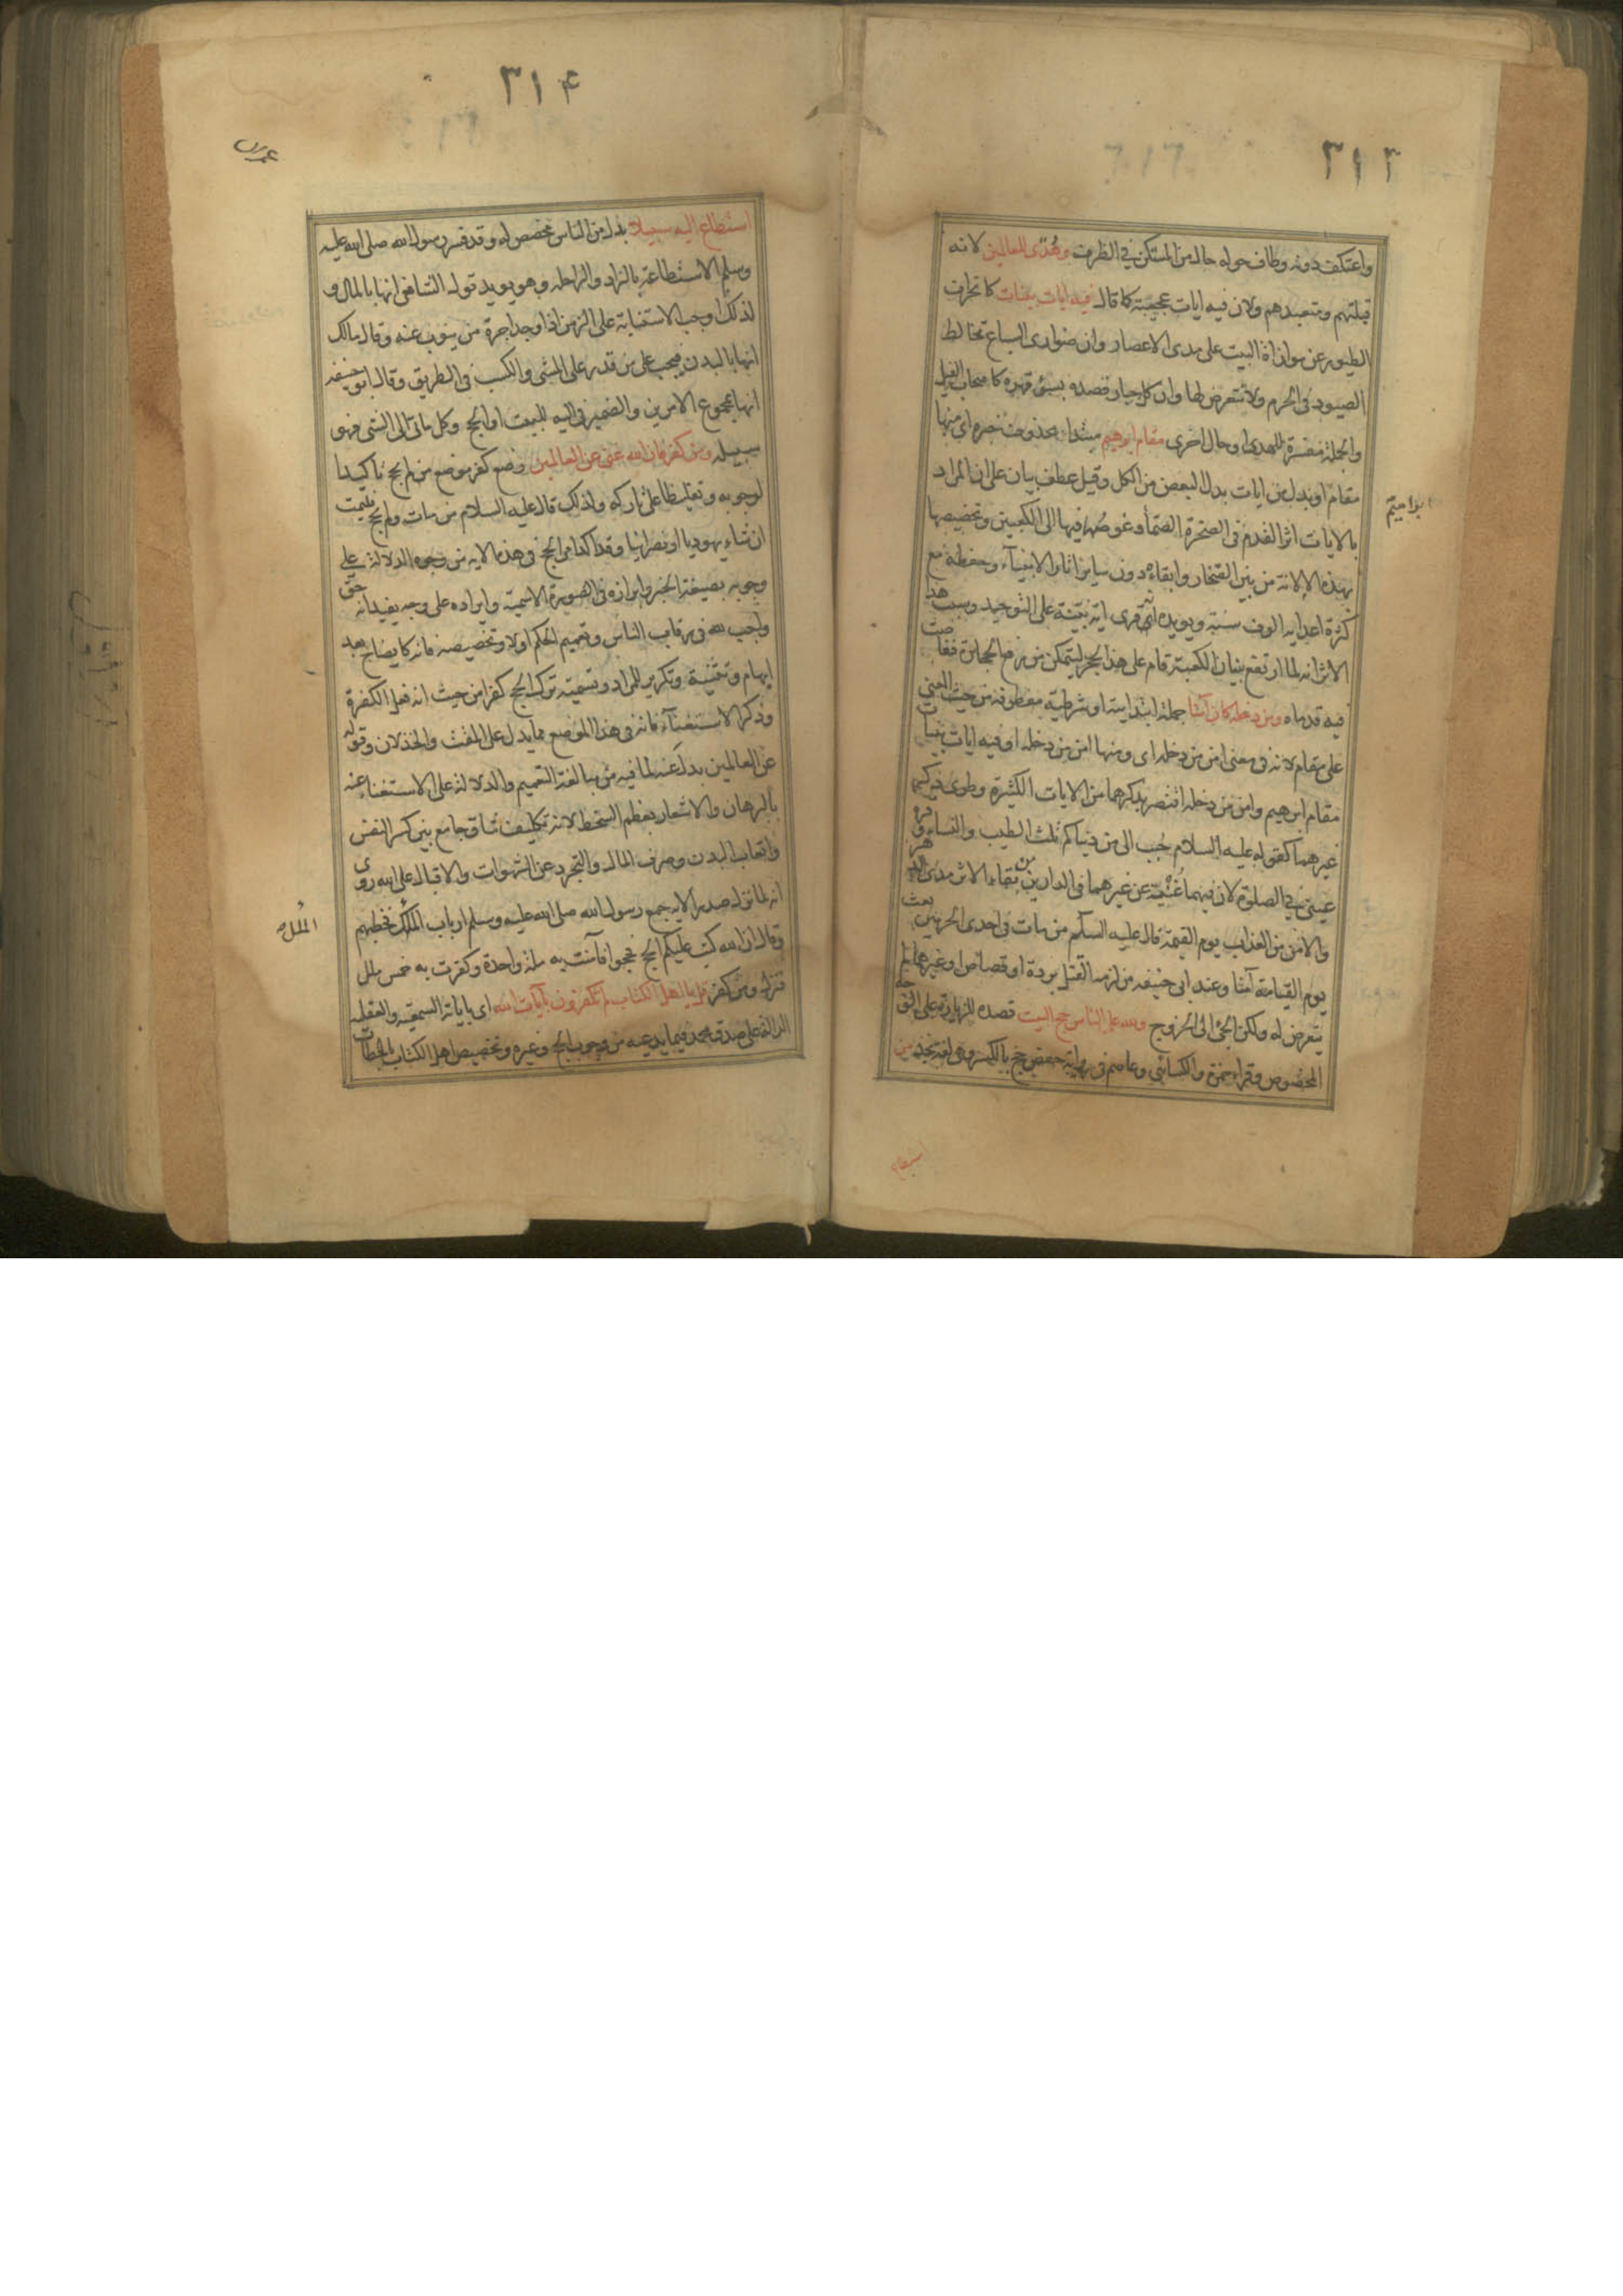 ٣١٣
واعتكف دونه وطاف حوله حال من المستكن في الظرف وهدى للعالمين لانه
قبلتهم ومتعبدهم ولان فيه ايات عجيبة كما قال فيه ايات بينات كانحراف
الطيور عن موازاة البيت على مدى الاعصار وان ضوارى السباع تخالط
الصيود فى الحرم ولا تتعرض لها وان كل جبار قصده بسوء قهره كاصحاب الفيل
والجملة مفسرة للهدى او حال اخرى مقام ابرهيم مبتداء محذوف خبره اى منها
مقام او بدل من ايات بدل البعض من الكل وقيل عطف بيان على ان المراد
ابراهيم
بالايات اثر القدم فى الصخرة الصماء وغوصها فيها الى الكعبين وتخصيصها
بهذه الالانة من بين الصخار وابقاءه دون ساير اثار الانبياء وحفظه مع
كثرة اعدايه الوف سنة ويويده انه قرى اية بينة على التوحيد وسبب هذا
الاثر انه لما ارتفع بنيان الكعبة قام على هذا الحجر ليتمكن من رفع الحجارة فغاصت
فيه قدماه ومن دخله كان آمنا جملة ابتدايية او شرطية معطوفة من حيث المعنى
على مقام لانه فى معنى امن من دخله اى ومنها امن من دخله او فيه ايات بينات
مقام ابرهيم وامن من دخله اقتصر بذكرهما من الايات الكثيرة وطوى ذكر
غيرهما كقوله عليه السلام حبب الى من دنياكم ثلث الطيب والنساء وقرة
عينى في الصلوة لان فيهما غنية عن غيرهما فى الدارين من بقاء الاثر مدى الدهر
والامن من العذاب يوم القيمة قال عليه السلام من مات فى احدى الحرمين بعث
يوم القيامة آمنا وعند ابى حنيفه من لزمه القتل بردة او قصاص او غيرهما لم
يتعرض له ولكن الجئ الى الخروج ولله على الناس حج البيت قصده للزيارة على الوجه
المخصوص وقراء حمزة والكسائي وعاصم فى رواية حفص حج بالكسر وهى لغة نجد من
استطاع
٣١٤
استطاع اليه سبيلا بدل من الناس مخصص له وقد فسر رسول الله صلى الله عليه
وسلم الاستطاعة بالزاد والراحلة وهو يويد قول الشافعى انها بالمال و
لذلك اوجب الاستنابة على الزمن اذا وجد اجرة من ينوب عنه وقال مالك
انها بالبدن فيجب على من قدر على المشى والكسب فى الطريق وقال ابو حنيفه
انها بمجموع الامرين والضمير فى اليه للبيت او الحج وكل ماتى الى الشى فهو
سبيله ومن كفر فان الله غنى عن العالمين وضع كفر موضع من لم يحج تاكيدا
لوجوبه وتغليظا على تاركه ولذلك قال عليه السلام من مات ولم يحج فليمت
ان شاء يهوديا او نصرانيا وقد اكد امر الحج فى هذه الايه من وجوه الدلالة على
وجوبه بصيغة الخبر وابرازه فى الصورة الاسمية وايراده على وجه يفيد انه حق
واجب لله فى رقاب الناس وتعميم الحكم اولا وتخصيصه فانه كايضاح بعد
ابهام وتثنية وتكرير للمراد وتسمية ترك الحج كفرا من حيث انه فعل الكفرة
وذكر الاستغناء فانه فى هذا الموضع مما يدل على المقت والخذلان وقوله
عن العالمين بدل عنه لما فيه من مبالغة التعميم والدلالة على الاستغناء عنه
بالبرهان والاشعار بعظم السخط لانه تكليف شاق جامع بين كسر النفس
واتعاب البدن وصرف المال والتجرد عن الشهوات والاقبال على الله روى
انه لما نزل صدر الايه جمع رسول الله صلى الله عليه وسلم ارباب الملل فخطبهم
الملل
وقال ان الله كتب عليكم الحج فحجوا فآمنت به ملة واحدة وكفرت به خمس ملل
فنزل ومن كفر قل يا اهل الكتاب لم تكفرون بآيات الله اى باياته السمعيه والعقليه
الدالة على صدق محمد فيما يدعيه من وجوب الحج وغيره وتخصيص اهل الكتاب بالخطاب